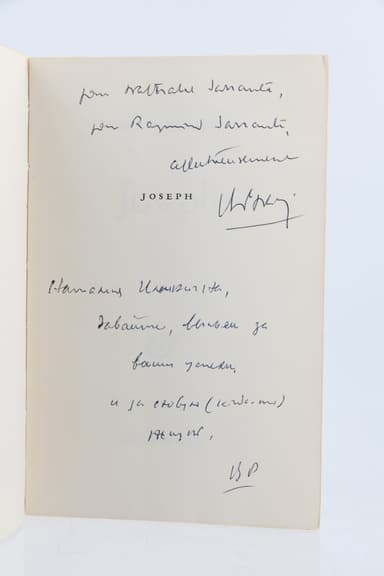 pour Nathalie Sarraute,
pour Raymond Sarraute,
affectueusement
JOSEPH
Наталия Ильинична,
давайте, выпьем за
ваши успехи,
и за свободу (когда-то)